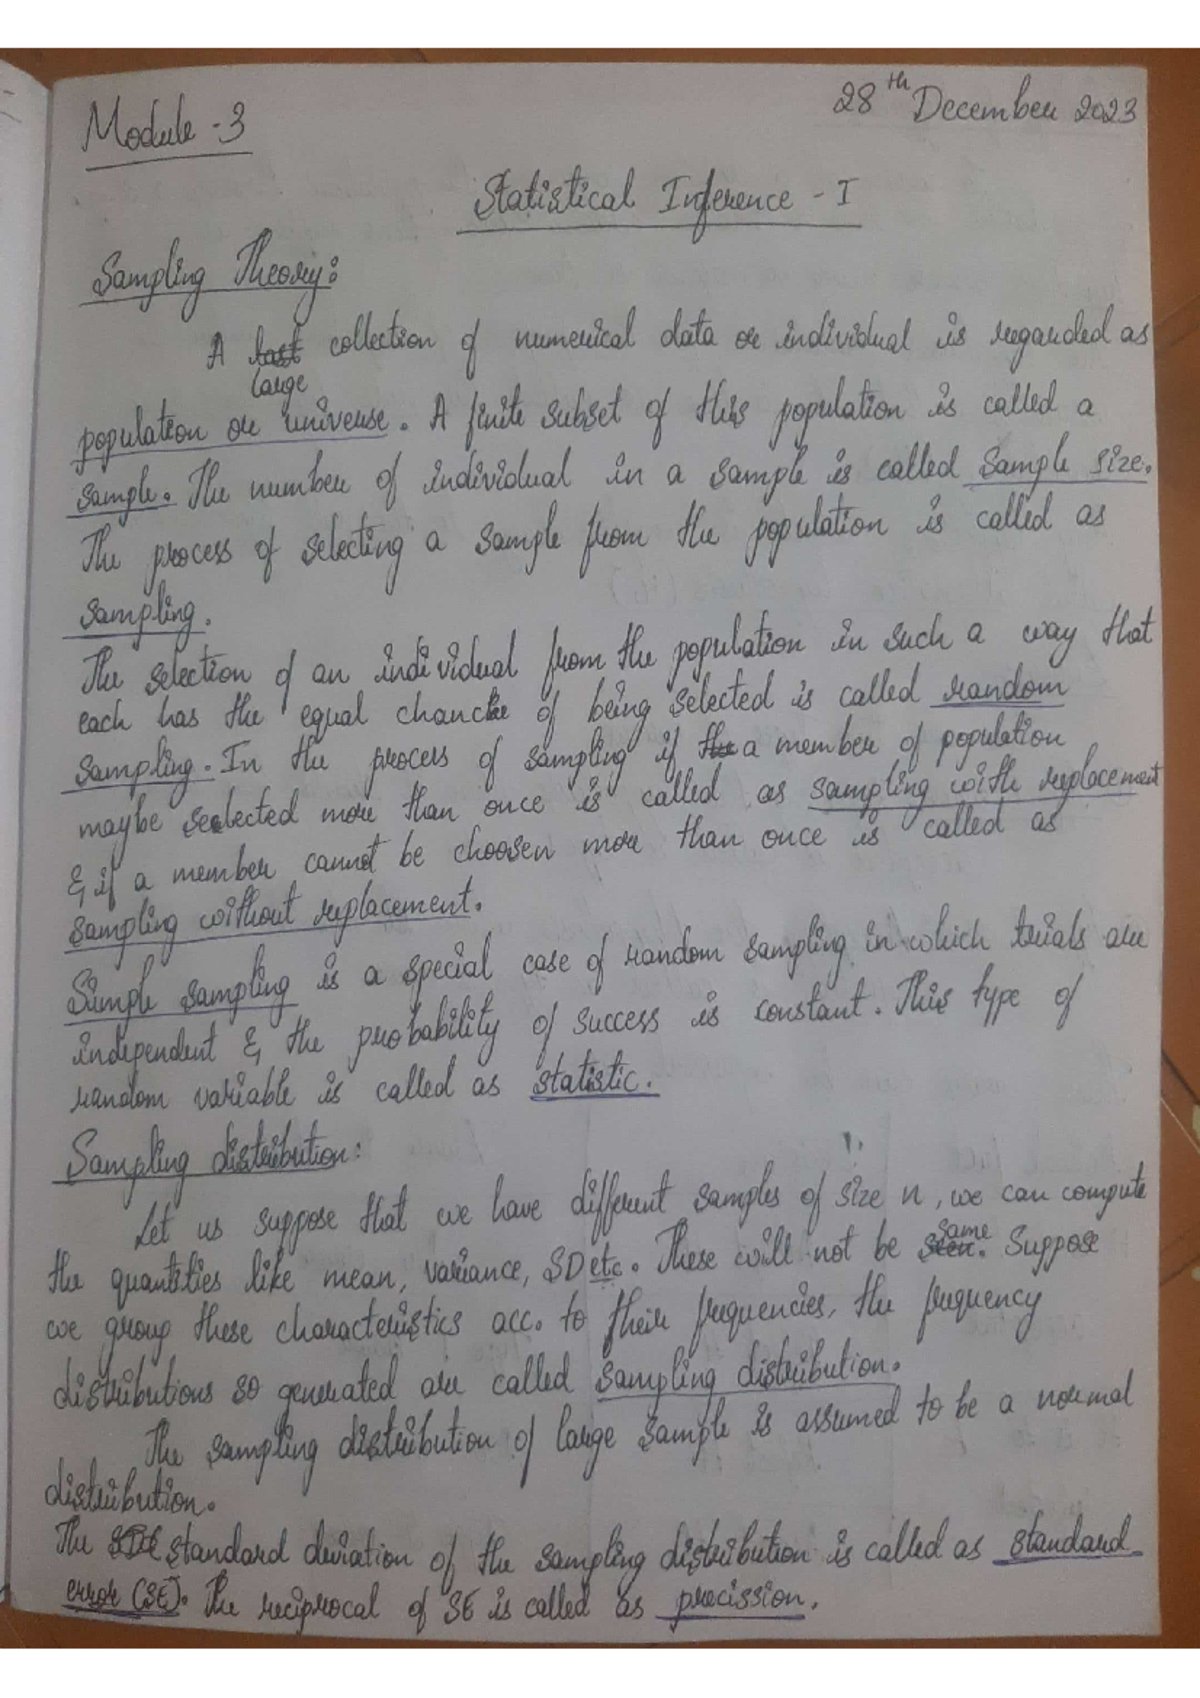 Module - 3
28th December 2023
Statistical Inference - I
Sampling Theory:
A last collection of numerical data or individual is regarded as
large
population or universe. A finite subset of this population is called a
sample. The number of individual in a sample is called sample size.
The process of selecting a sample from the population is called as
sampling.
The selection of an individual from the population in such a way that
each has the equal chance of being selected is called random
sampling. In the process of sampling if the a member of population
maybe seelected more than once is called as sampling with replacement
& if a member cannot be choosen more than once is called as
sampling without replacement.
Simple sampling is a special case of random sampling in which trials are
independent & the probability of success is constant. This type of
random variable is called as statistic.
Sampling distribution:
Let us suppose that we have different samples of size n, we can compute
the quantities like mean, variance, SD etc. These will not be same. Suppose
we group these characteristics acc. to their frequencies, the frequency
distributions so generated are called sampling distribution.
The sampling distribution of large sample is assumed to be a normal
distribution.
The standard deviation of the sampling distribution is called as standard
error (SE). The reciprocal of SE is called as precission.